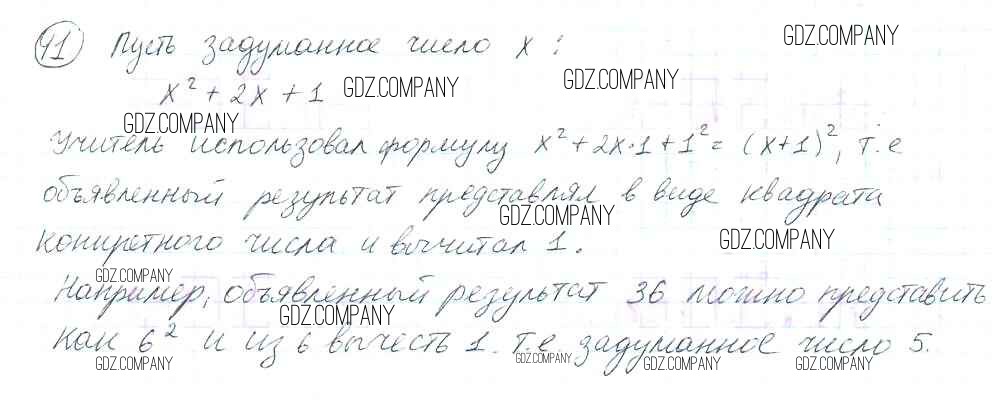 41) Пусть задуманное число x: GDZ.COMPANY
x² + 2x + 1 GDZ.COMPANY GDZ.COMPANY
GDZ.COMPANY
Учитель использовал формулу x² + 2x·1 + 1² = (x+1)², т.е
объявленный результат представлял в виде квадрата
GDZ.COMPANY
конкретного числа и вычитал 1. GDZ.COMPANY
GDZ.COMPANY
Например, объявленный результат 36 можно представить
GDZ.COMPANY
как 6² и из 6 вычесть 1. т.е. задуманное число 5.
GDZ.COMPANY GDZ.COMPANY GDZ.COMPANY GDZ.COMPANY